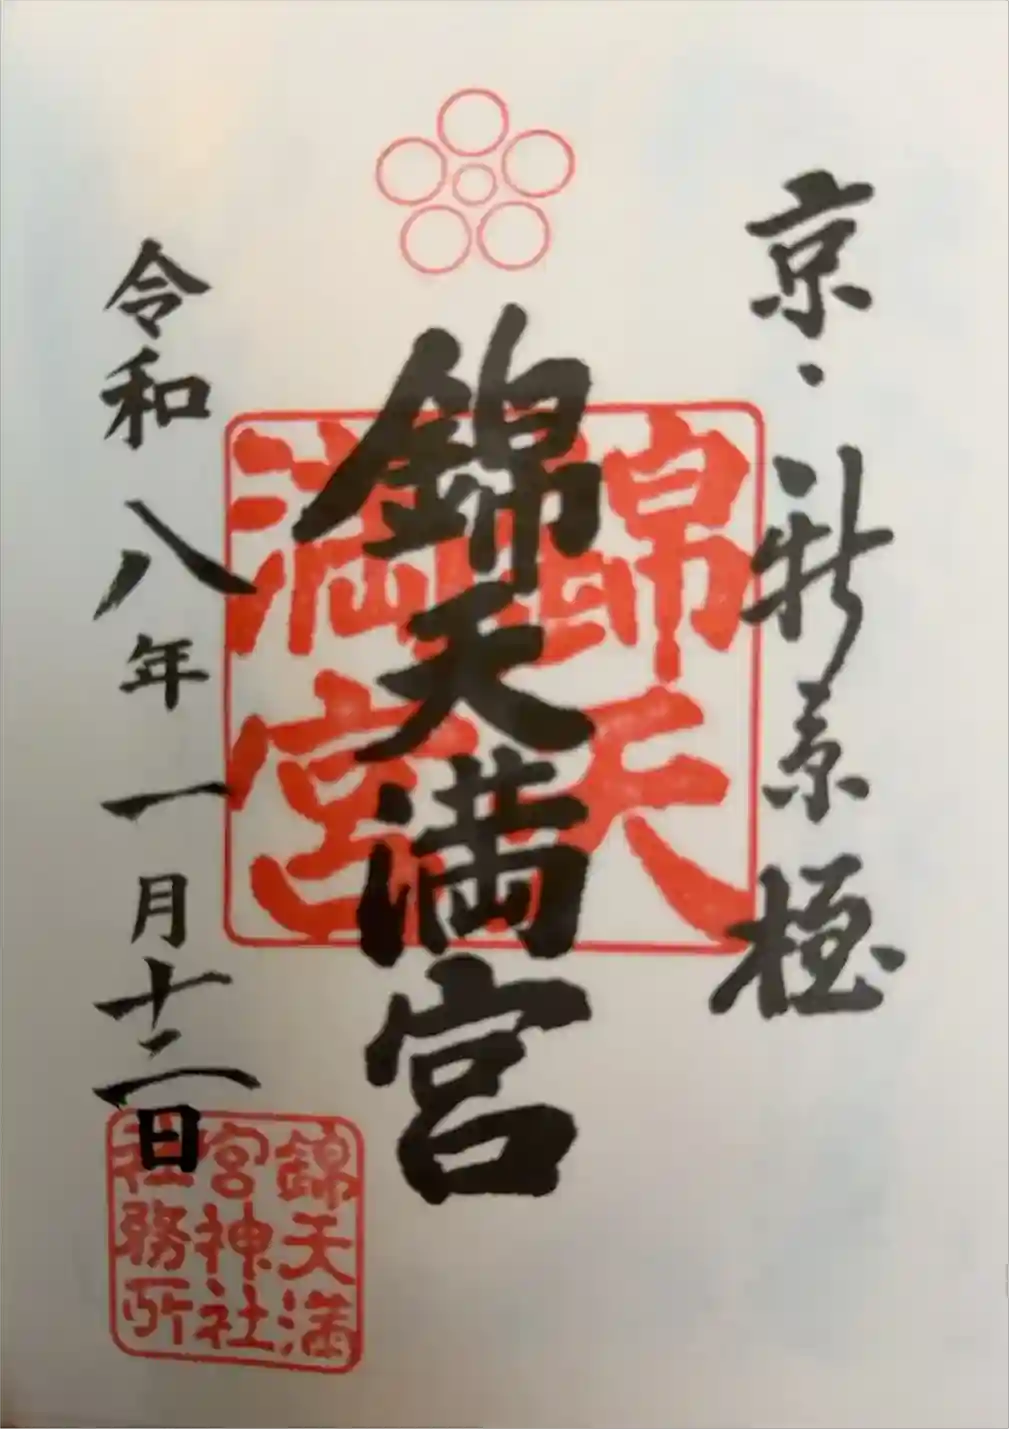 京・新京極
錦天満宮
錦天満宮
令和八年一月十二日
錦天満
宮神社
社務所